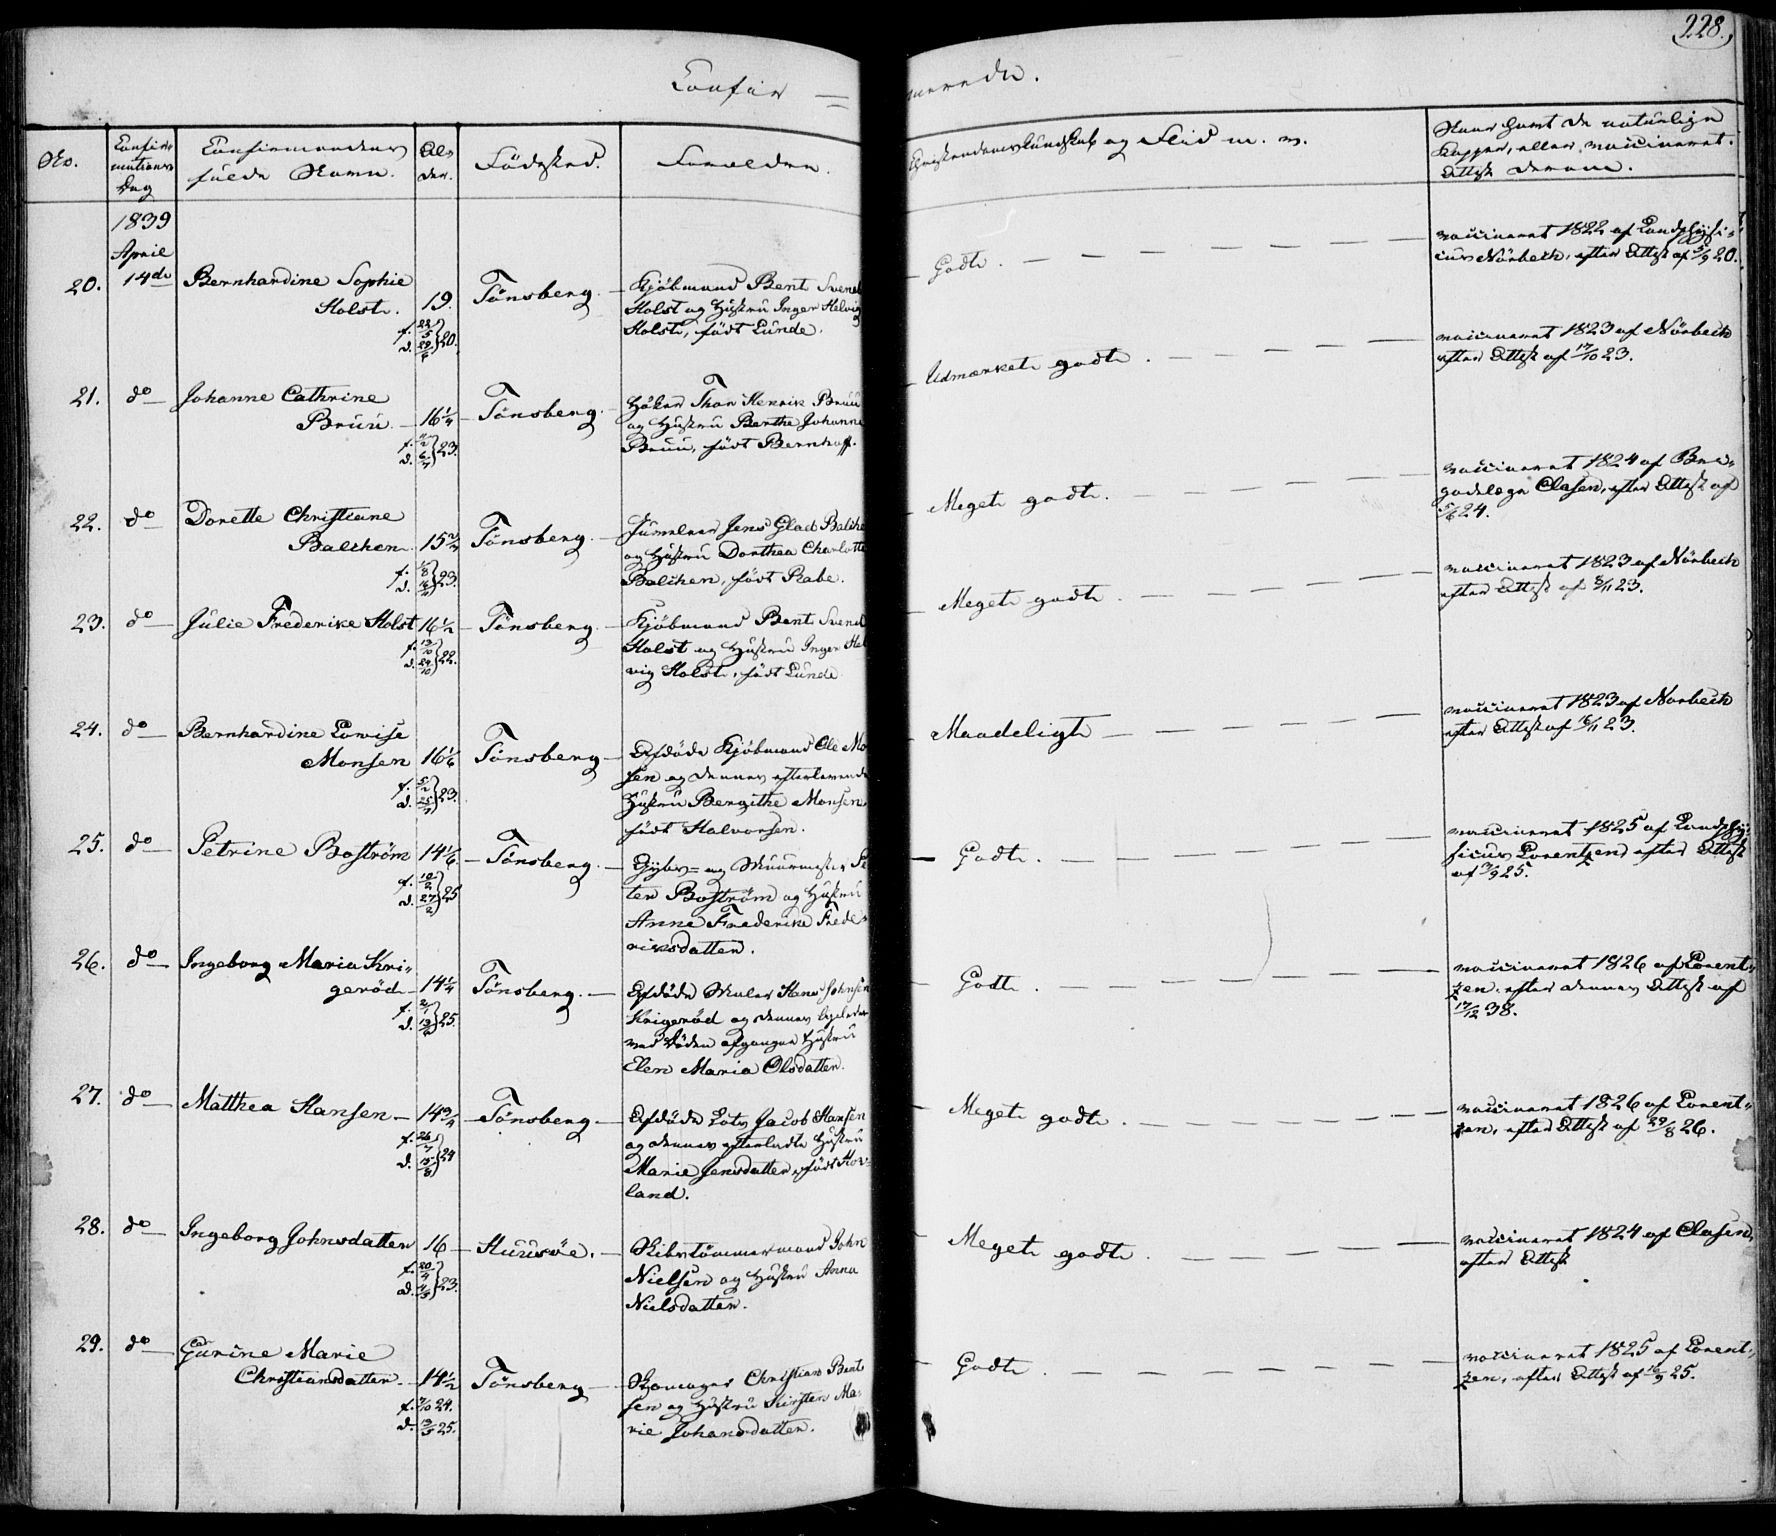 228.
Confir=
merede.
No.
Confir-
mations
Dag
Confirmandens
fulde Navn.
Al-
der.
Födested.
Forældre.
Christendomskundskab og Flid m. v.
Naar havt de naturlige
Kopper, eller vaccineret.
Attest derom.
1839
April
20.
14de
Bernhardine Sophie
Holst.
19.
f. 22/5
d. 29/5
20.
Tönsberg.
Kjöbmand Bent Svend
Holst og Hustru Inger Helvig
Holst, födt Lunde.
Godt.
vaccineret 1822 af Landphysi-
cus Nörbech, efter Attest af 5/9 20.
21.
do
Johanne Cathrine
Bruu
16 1/4
23.
Tönsberg.
Höker Thor Henrik Bruu
og Hustru Berthe Johanne
Bruu, födt Bernhoff.
Udmærket godt.
vaccineret 1823 af Nörbech
efter Attest af 17/10 23.
22.
do
Dorette Christiane
Balchen
15 3/4
f. 1/8
23.
Tönsberg.
Juveleer Jens Glad Balche
og Hustru Dorthea Charlotte
Balchen, födt Rabe.
Meget godt.
vaccineret 1824 af Bri-
gadelæge Clasen, efter Attest af
5/6 24.
23.
do
Julie Frederike Holst
16 1/2
f. 13/10
d. 24/10
22.
Tönsberg.
Kjöbmand Bent Svend
Holst og Hustru Inger Hel
vig Holst, födt Lunde.
Meget godt.
vaccineret 1823 af Nörbech
efter Attest af 8/11 23.
24.
do
Bernhardine Lovise
Monsen
16 1/6
f. 5/2
23.
Tönsberg
Afdöde Kjöbmand Ole Mo
sen og dennes efterlevende
Hustru Bergithe Monsen
födt Halvorsen.
Maadeligt
vaccineret 1823 af Norbech
efter Attest af 16/11 23.
25.
do
Petrine Boström
14 1/6
f. 10/2
d. 27/2
25
Tönsberg.
Gybs= og Muurmester Pe
ter Boström og Hustru
Anne Frederike Frede-
riksdatter.
Godt.
vaccineret 1825 af Landphy-
sicus Lorentzen, efter Attest
af 3/9 25.
26.
do
Ingeborg Maria Kri-
geröd
14 1/4
25.
Tönsberg.
Afdöde Maler Hans Johnsen
Krigeröd og dennes ligeledes
ved Döden afgangne Hustru
Elen Maria Olsdatter.
Godt.
vaccineret 1826 af Lorent-
zen, efter dennes Attest af
17/12 38.
27.
do
Matthea Hansen
14 3/4
f. 26/7
d. 15/8
24
Tönsberg
Afdöde Lots Jacob Hansen
og dennes efterladte Hustru
Marie Jensdatter, födt Hov-
land.
Meget godt.
vaccineret 1826 af Lorent-
zen, efter Attest af 29/8 26.
28.
do
Ingeborg Johnsdatter
16
f. 20/4
d. 4/5
23.
Huusöe.
Skibstömmermand John
Nielsen og Hustru Anna
Nielsdatter.
Meget godt.
vaccineret 1824 af Clasen
efter Attest
29.
do
Gurine Marie
Christiansdatter
14 1/2
f. 7/10 24.
d. 13/3 25.
Tönsberg
Skomager Christian Bent
sen og Hustru Kirsten Ma-
rie Johansdatter.
Godt.
vaccineret 1825 af Lorent-
zen, efter Attest af 16/9 25.